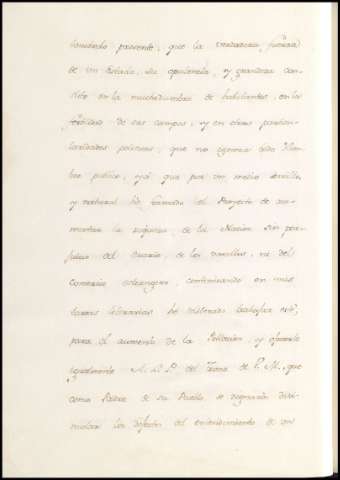 teniendo presente, que la verdadera fuerza
de un Estado, su opulencia, y grandeza con-
siste en la muchedumbre de habitantes, en la
de sus campos, y en otras particu-
laridades precisas, que no ignora este Hom-
bre publico, y que por un medio sencillo,
y natural ha formado el Proyecto de au-
mentar la riqueza de la Nacion sin per-
juicio del Erario, de los vasallos, ni del
Comercio estrangero, continuando en mis
tareas literarias he
para el aumento de la Poblacion, y ofrecerle
igualmente A. L. P. del Trono de V. M., que
como Padre de su Pueblo se dignará disi-
mular los defectos del entendimiento de un